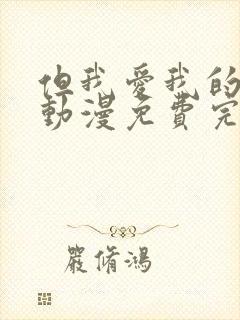 但我愛我的
動漫免費完
嚴脩鴻